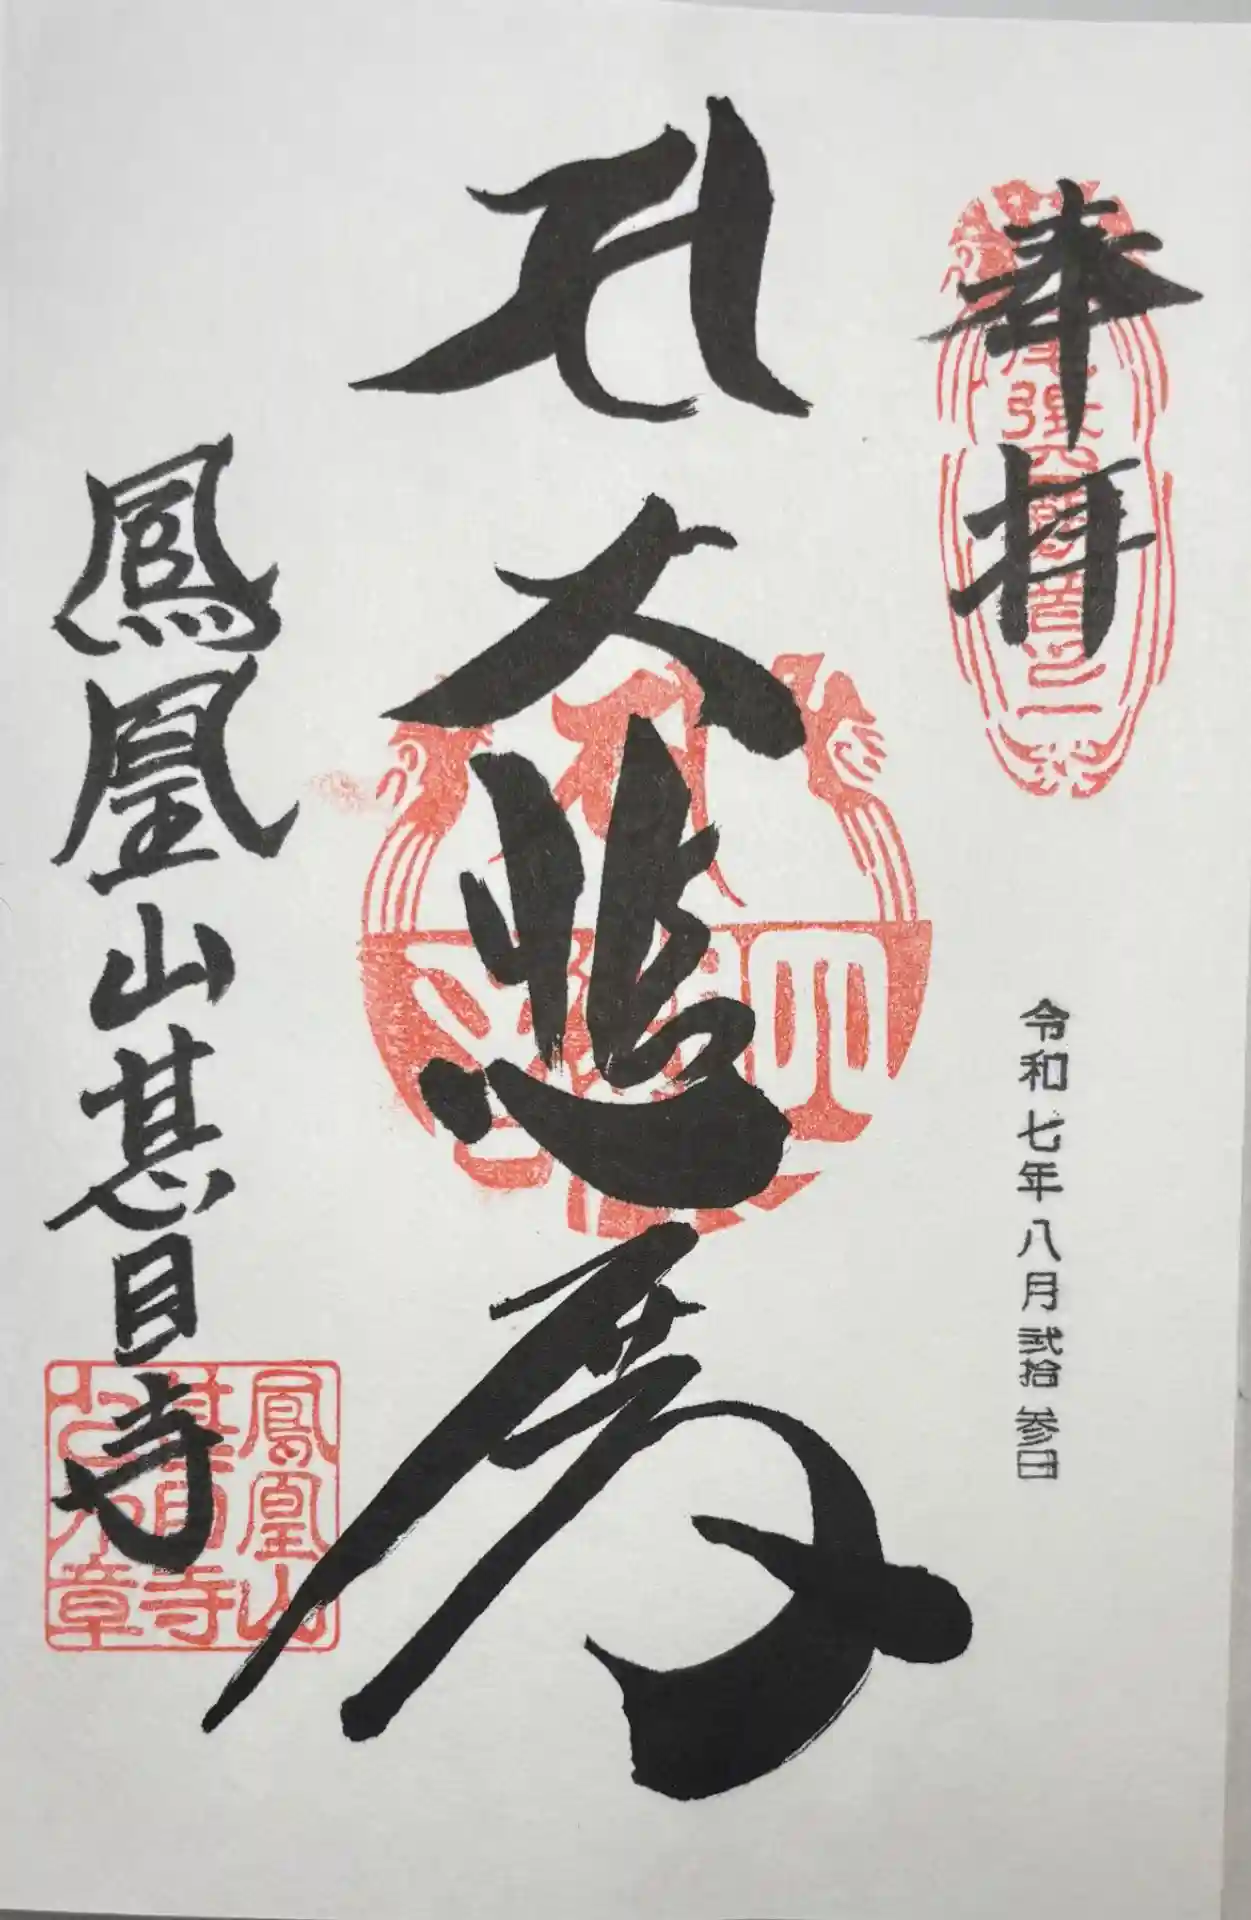 奉拝
尾張四観音之一
令和七年八月弐拾参日
大悲殿
鳳凰山甚目寺
鳳凰山
甚目寺